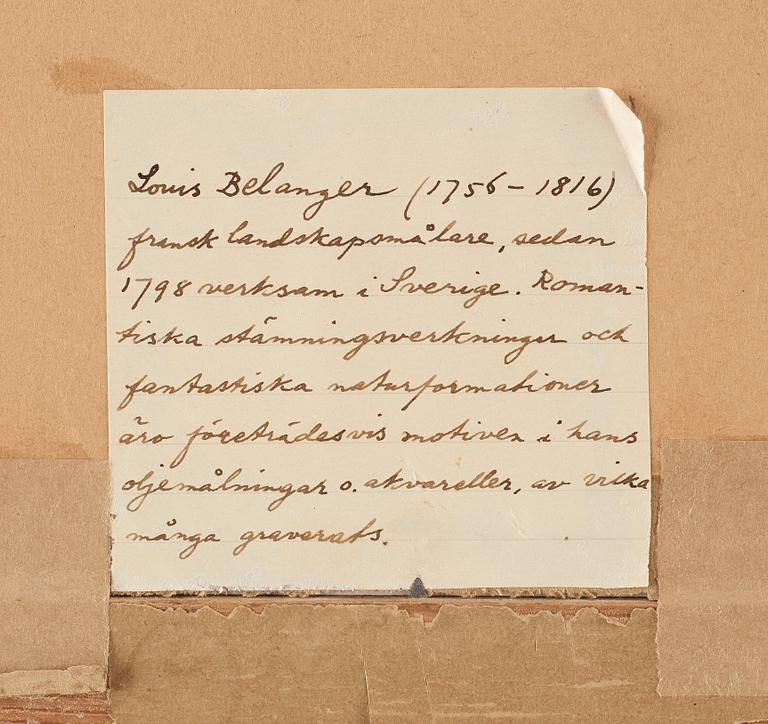 Louis Belanger (1756 – 1816)
fransk landskapsmålare, sedan
1798 verksam i Sverige. Roman-
tiska stämningsverkningar och
fantastiska naturformationer
äro företrädesvis motiven i hans
oljemålningar o. akvareller, av vilka
många graverats.